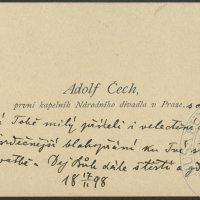 Adolf Čech,
první kapelník Národního divadla v Praze.
Tobě milý příteli i velectěné
srdečnější blahopřání ku Tvé
Dej Bůh dále štěstí a
18 17/4 98